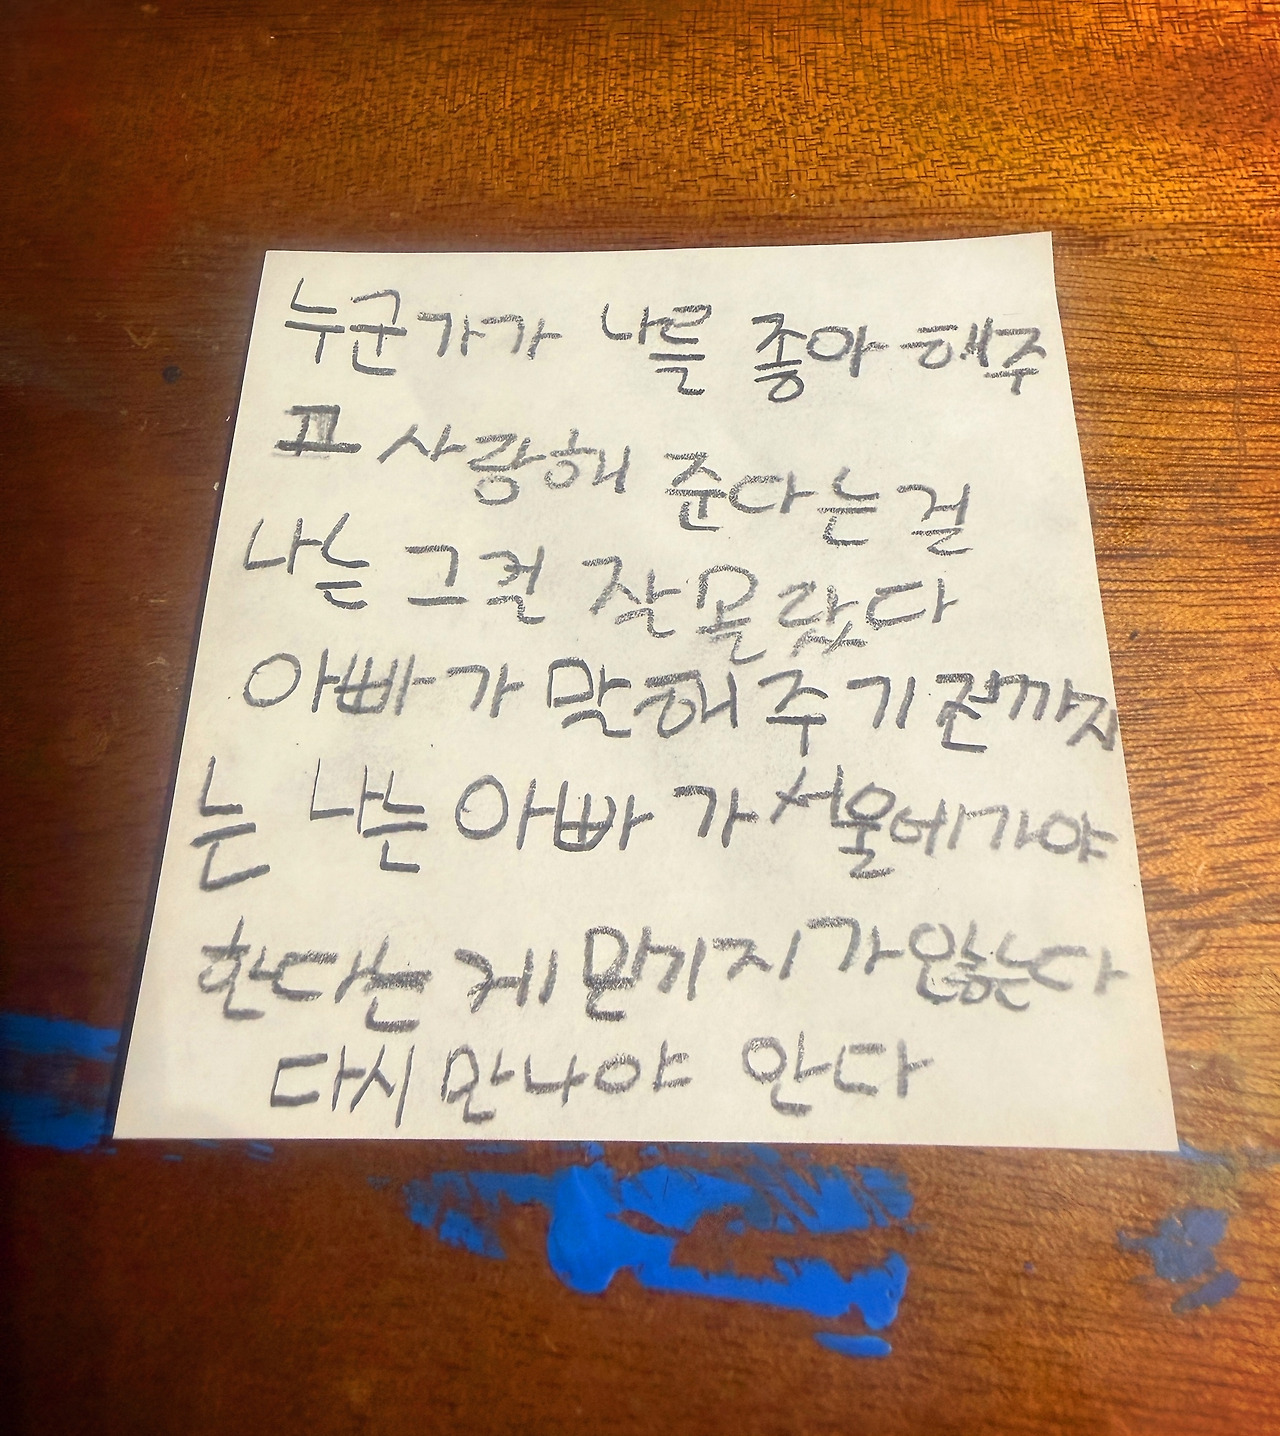 누군가가 나를 좋아 해주
고 사랑해 준다는걸
나는 그걸 잘 몰랐다
아빠가 말해주기전까지
는 나는 아빠가서울에가야
한다는 게 믿기지가 않는다
다시 만나야 안다